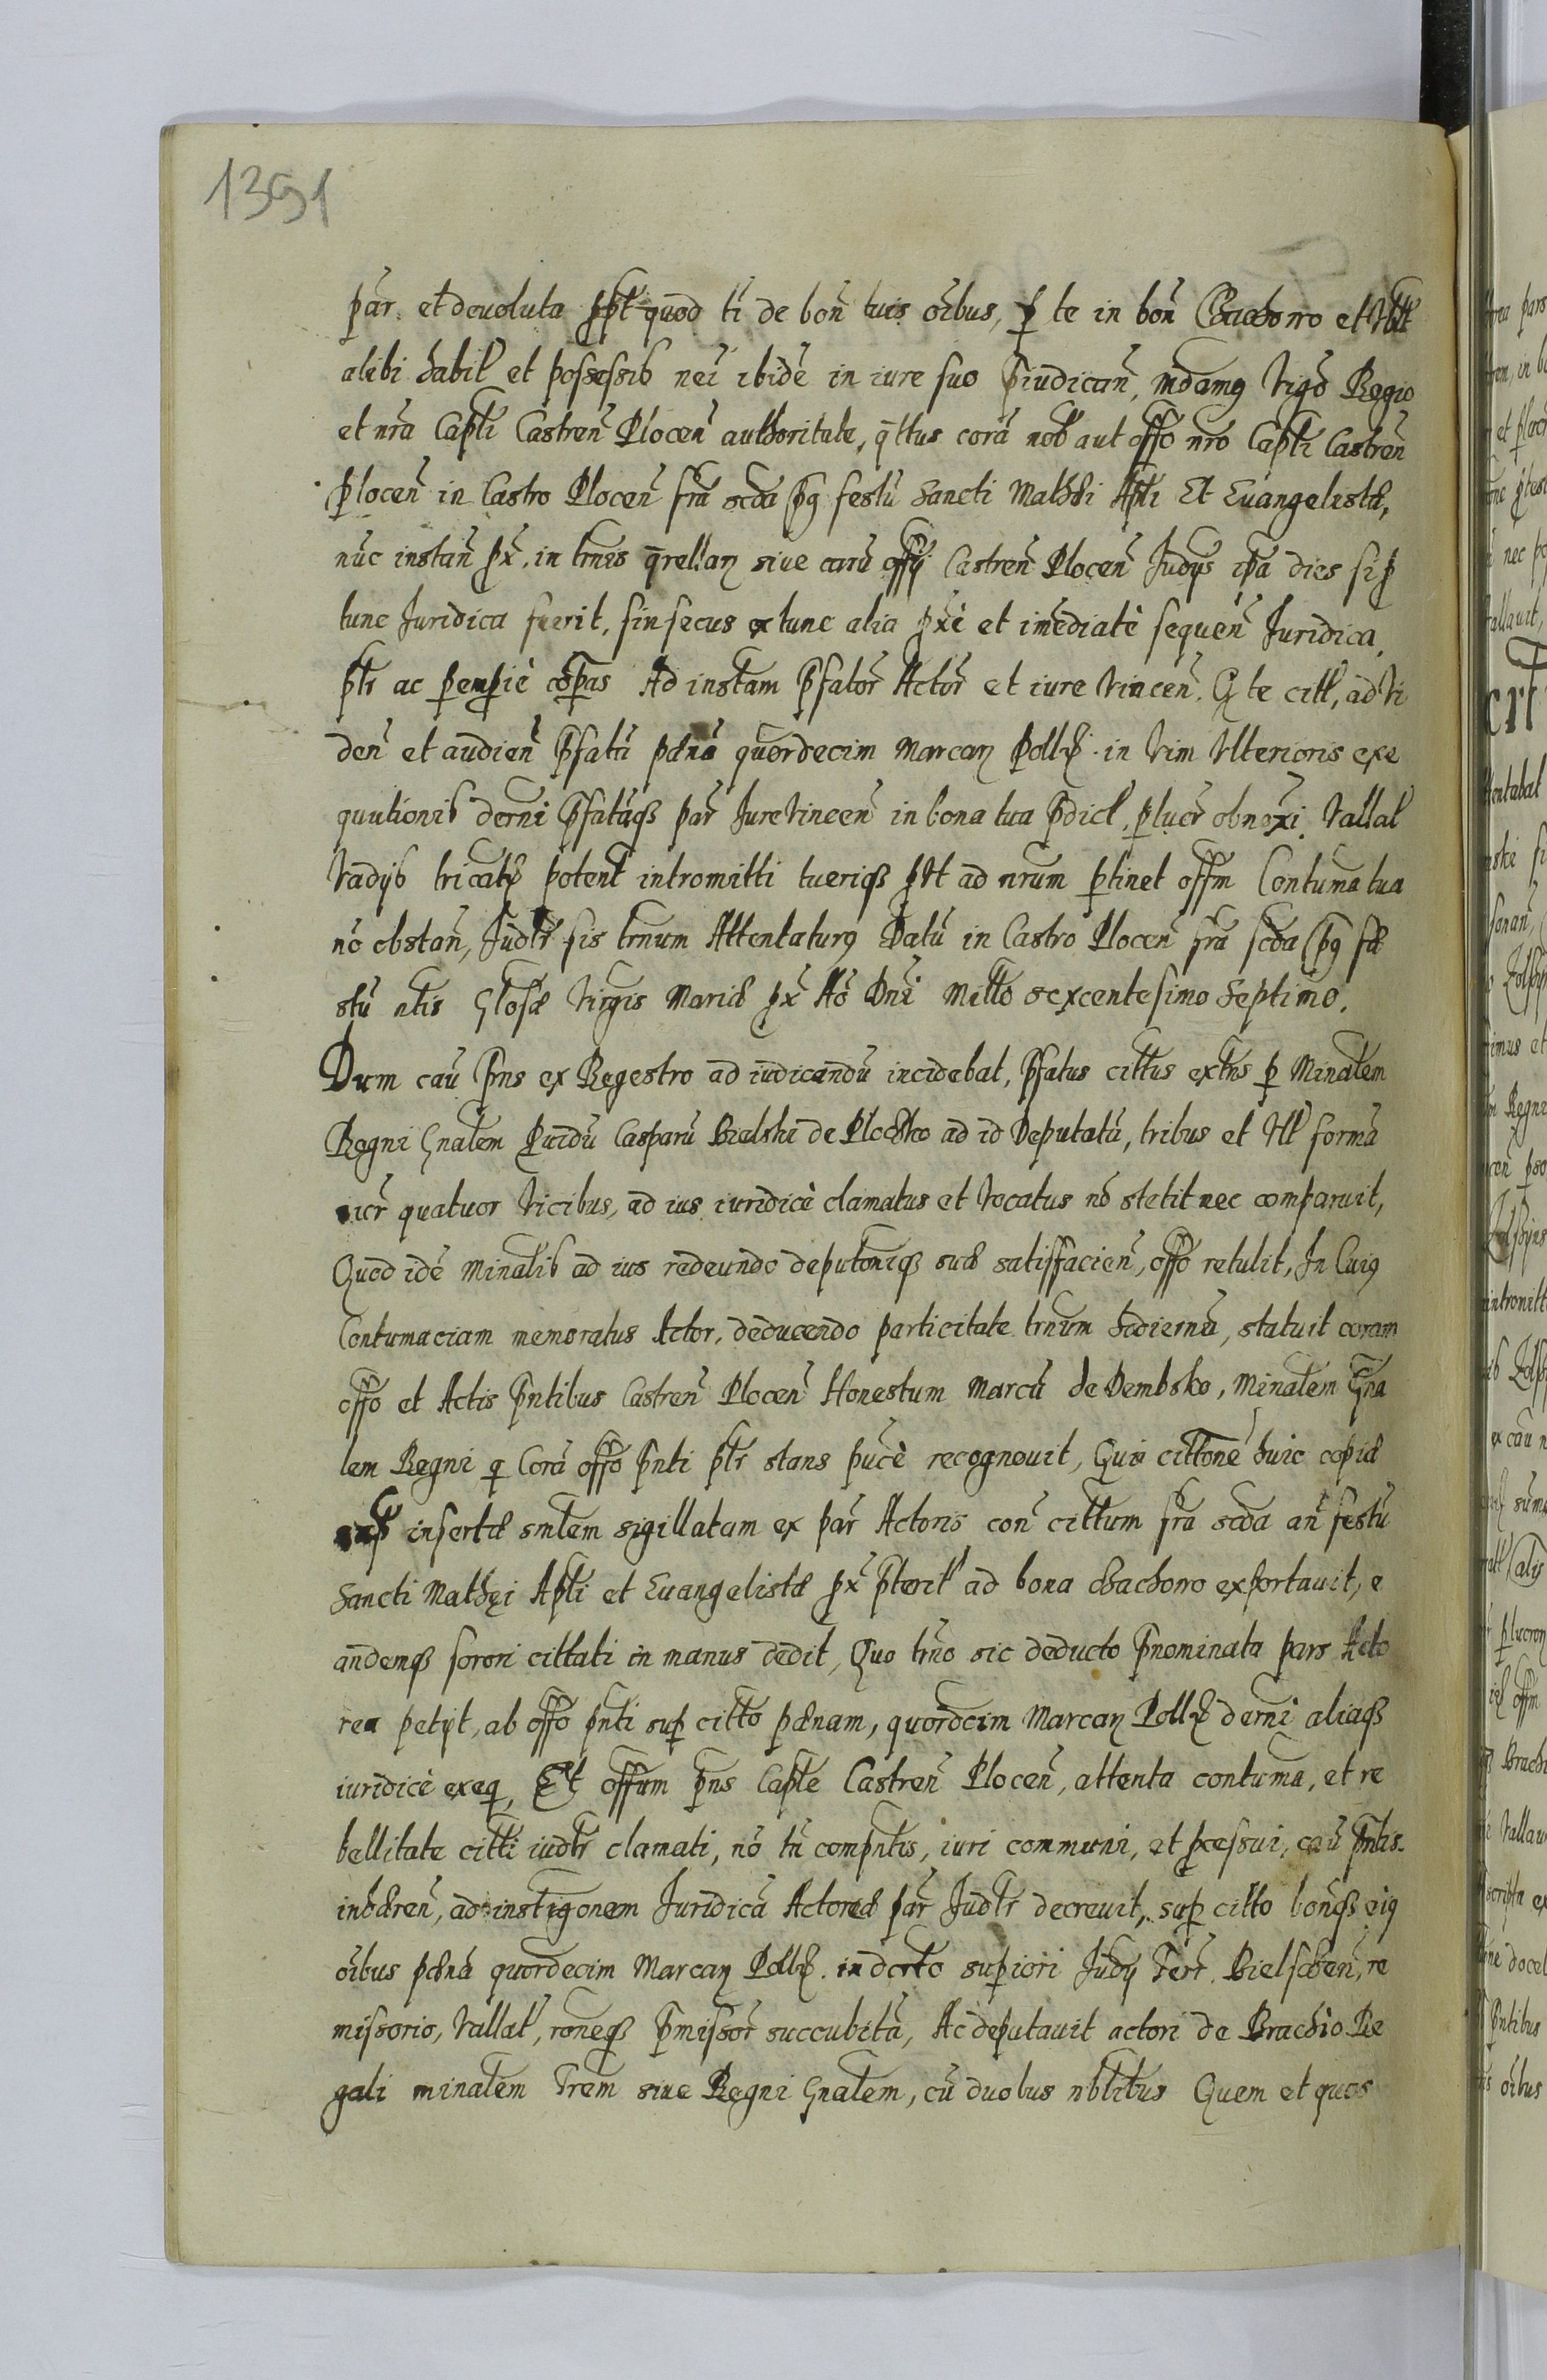 1391
par. et deuoluta ppt quod ti de bon tuis oibus, p te in bon Chachorro et Vbt
alibi habit et possessis nei ibide in iure suo piudican, mdamq Vigo Regio
et nra Capti Castren Plocen authoritate, qttus cora nob aut offo nro Capti Castren
Plocen in Castro Plocen fra scda pq festu Sancti Mathæi Apti Et Euangelistæ,
nuc instan px. in trnis qrellaz siue caru offy Castren Plocen Judys ipa dies si p
tunc Juridica fuerit, sin secus ex tunc alia pxe et imediatè sequen Juridica,
ptr ac pempiè copas Ad instam pfator Actor et iure Vincen. Q te citt, ad Vi
den et audien pfatu pæna quordecim Marcaz Pollz. in Vim Vlterioris exe
qutionis derni pfataqz par Jure Vincen in bona tua pdict, plucr obnoxi. Vallat
Vadys tricatz potent intromitti tueriqz pVt ad nrum ptinet offm Contuma tua
no obstan, Judtr sis trnum Attentaturq Datu in Castro Plocen fra scda pq fe
stu ntis Glosæ Virgis Mariæ px Ao Dni Millo sexcentesimo Septimo.
Dum cau pns ex Regestro ad iudicandu incidebat, pfatus cittus extns p Minalem
Regni Gnalem Puidu Casparu Bielski de Plocko ad id Deputatu, tribus et Vlt forma
iur quatuor Vicibus, ad ius iuridicè clamatus et Vocatus no stetit nec comparuit,
Quod ide Minalis ad ius redeundo deputoniqz suæ satisfacien, offo retulit, In Cuiq
Contumaciam memoratus Actor, deducendo particitate trnum hodiernu, statuit coram
offo et Actis pntibus Castren Plocen Honestum Marcu de Dembsko, Minalem Gna
lem Regni q Cora offo pnti ptr stans pucè recognouit, Quia cittone huic copiæ
sup insertæ smlem sigillatam ex par Actoris con cittum fra scda an festu
Sancti Mathęi Apti et Euangelistæ px pterit ad bona Chachorro exportauit, e
andemqz sorori cittati in manus dedit, Quo trno sic deducto pnominata pars Acto
rea petyt, ab offo pnti sup citto pænam, quordecim Marcaz Pollz derni aliaqz
iuridicè exeq, Et offum pns Capte Castren Plocen, attenta contuma, et re
bellitate citti iudtr clamati, no tn compntis, iuri communi, et pcessui, cau pntis.
inhæren, ad instigonem Juridica Actoreæ par Judtr decreuit, sup citto bonqz eiq
oibus pæna quordecim Marcaz Pollz. in dcrto supiori Judy Terr. Bielscen, re
missorio, Vallat, roneqz pmissor succubita, Ac deputauit actori de Brachio Re
gali minalem Trem siue Regni Gnalem, cu duobus nblibus Quem et quos